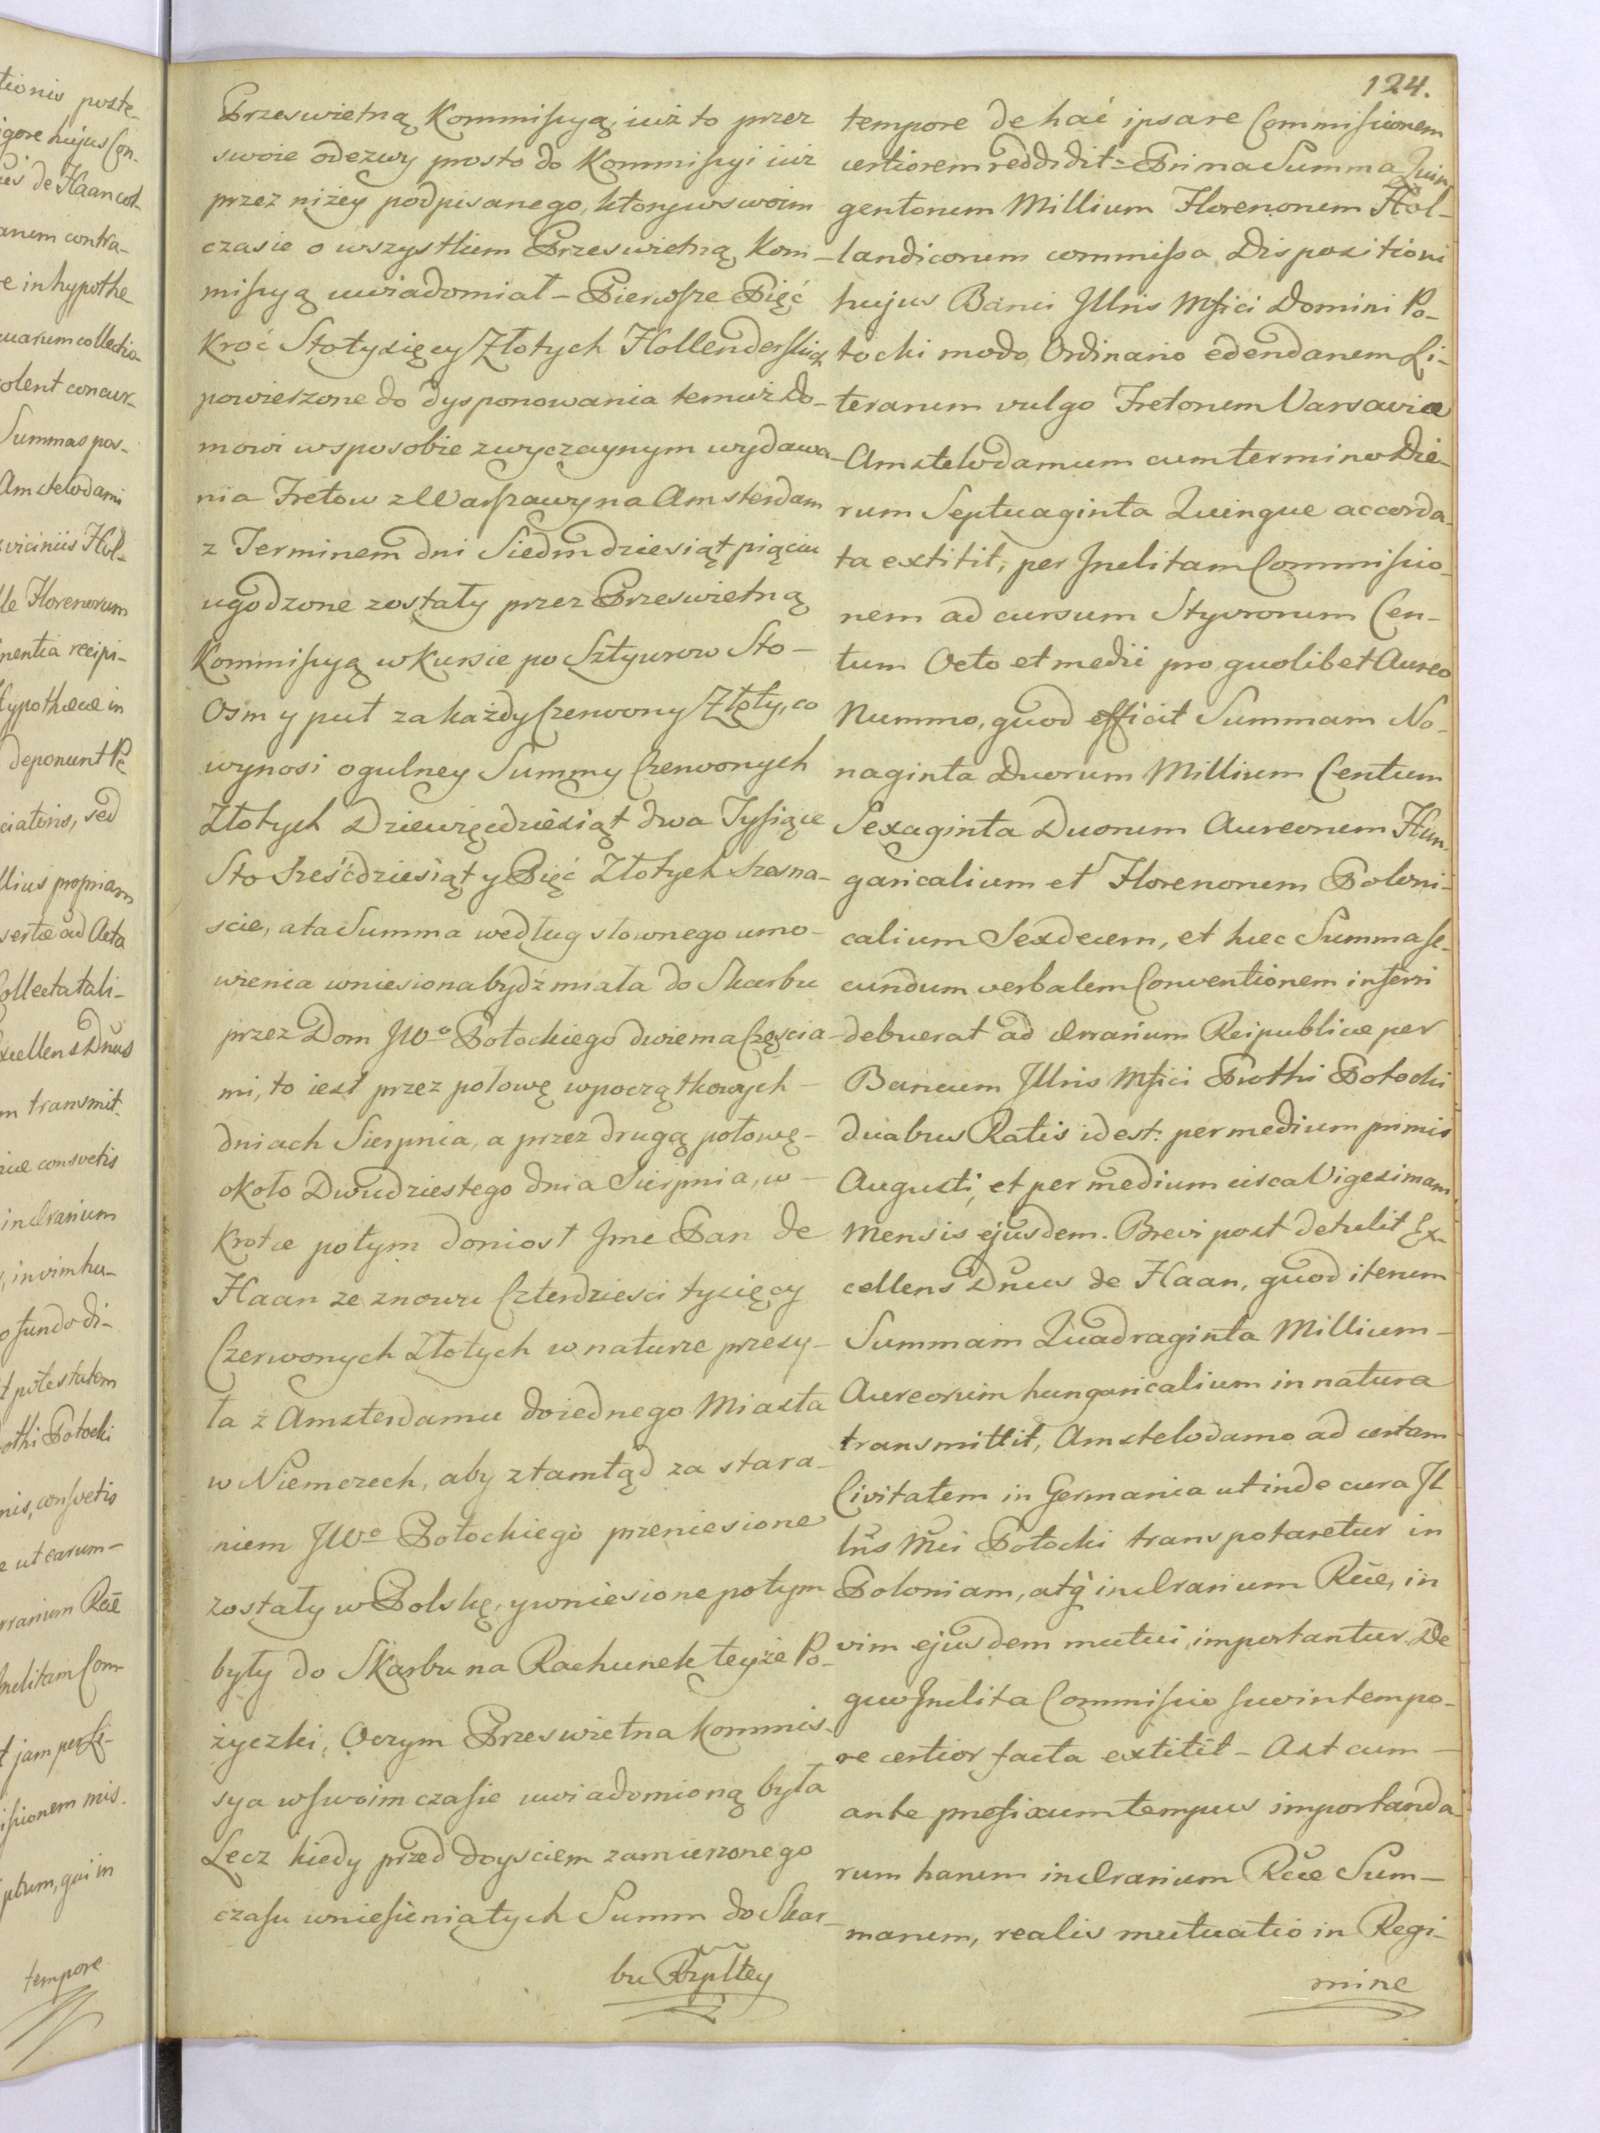 tionis poste-
igore hujus Con-
de Haan con-
anum contra-
e in hypothe
quarum collectio-
volent concur-
Summas pos-
Amstelodami
viciniis Hol-
lle Florenorum
nentia recipi-
Hypothecæ in
deponunt
ciatoris, sed
llius propriam
sertæ ad Acta
Collecta tali-
xcellens Dñus
m transmit-
uæ consvetis
in Ærarium
, in vim hu-
o fundo di-
t potestatem
othi Potocki
nis, consvetis
e ut earum-
rrarium Rcæ
Inclitam Com-
t jam per Li-
issionem mis.
ptum, qui in
tempore
124.
Przeswietną Kommissyą, iuż to przez
swoie odezwy prosto do Kommissyi iuż
przez niżey podpisanego, ktory w swoim
czasie o wszystkiem Przeswietną Kom-
missyą uwiadomiał – Pierwsze Pięć
Kroć Stotysięcy Złotych Hollenderskich
powierzone do dysponowania temuż Do-
mowi w sposobie zwyczaynym wydawa-
nia Tretow z Warszawy na Amsterdam
z Terminem dni Siedmdziesiąt pięciu
ugodzone zostały przez Przeswietną
Kommissyą w Kursie po Sztywrow Sto –
Osm y puł za każdy Czerwony Złoty, co
wynosi ogulney Summy Czerwonych
Złotych Dziewięćdziesiąt dwa Tysiące
Sto Sześćdziesiąt y Pięć Złotych szesna-
scie, a ta Summa według słownego umo-
wienia wniesiona bydź miała do Skarbu
przez Dom JWo Potockiego dwiema Częścia-
mi, to iest przez połowę w początkowych –
dniach Sierpnia, a przez drugą połowę –
około Dwudziestego dnia Sierpnia, w –
Krotce potym doniost Jme Pan de
Haan ze znowu Czterdziesci tysięcy
Czerwonych Złotych w naturze przesy-
ła z Amsterdamu do iednego Miasta
w Niemczech, aby ztamtąd za stara-
niem JWo Potockiego przeniesione
zostały w Polskę, y wniesione potym
były do Skarbu na Rachunek teyże Po-
życzki, Oczym Przeswietna Kommis-
sya w swoim czasie uwiadomioną była
Lecz kiedy przed doysciem zamierzonego
czasu wniesienia tych Summ do Skar-
bu Rzpltey
tempore de hac ipsa re Commissionem
certiorem reddidit – Prima Summa Quin
gentorum Millium Florenorum Hol-
landicorum commissa Dispositioni
hujus Banci Jllris Mfici Domini Po-
tocki modo Ordinario edendarum Li-
terarum vulgo Tretorum Varsavia
Amstelodamum cum termino Die-
rum Septuaginta Quinque accorda-
ta extitit, per Inclitam Commissio-
nem ad cursum Styvrorum Cen-
tum Octo et medii pro quolibet Aureo
Nummo, quod efficit Summam No-
naginta Duorum Millium Centum
Sexaginta Duorum Aureorum Hun-
garicalium et Florenorum Poloni-
calium Sexdecem, et hæc Summa se-
cundum verbalem Conventionem inferri
debuerat ad Ærarium Reipublicæ per
Bancum Jllris Mfici Prothi Potocki
duabus Ratis id est: per medium primis
Augusti, et per medium circa Vigesimam
Mensis ejusdem. Brevi post detulit Ex-
cellens Dnus de Haan, quod iterum
Summam Quadraginta Millium –
Aureorum hungaricalium in natura
transmittit, Amstelodamo ad certam
Civitatem in Germania ut inde cura Jl
lris Mci Potocki transpotaretur in
Poloniam, atq in Ærarium Rcæ, in
vim ejusdem mutui, importantur. De
quo Inclita Commissio suo in tempo-
re certior facta extitit – Ast cum –
ante prefixum tempus importanda
rum harum in Ærarium Rcæ Sum-
marum, realis mutuatio in Regi-
mine